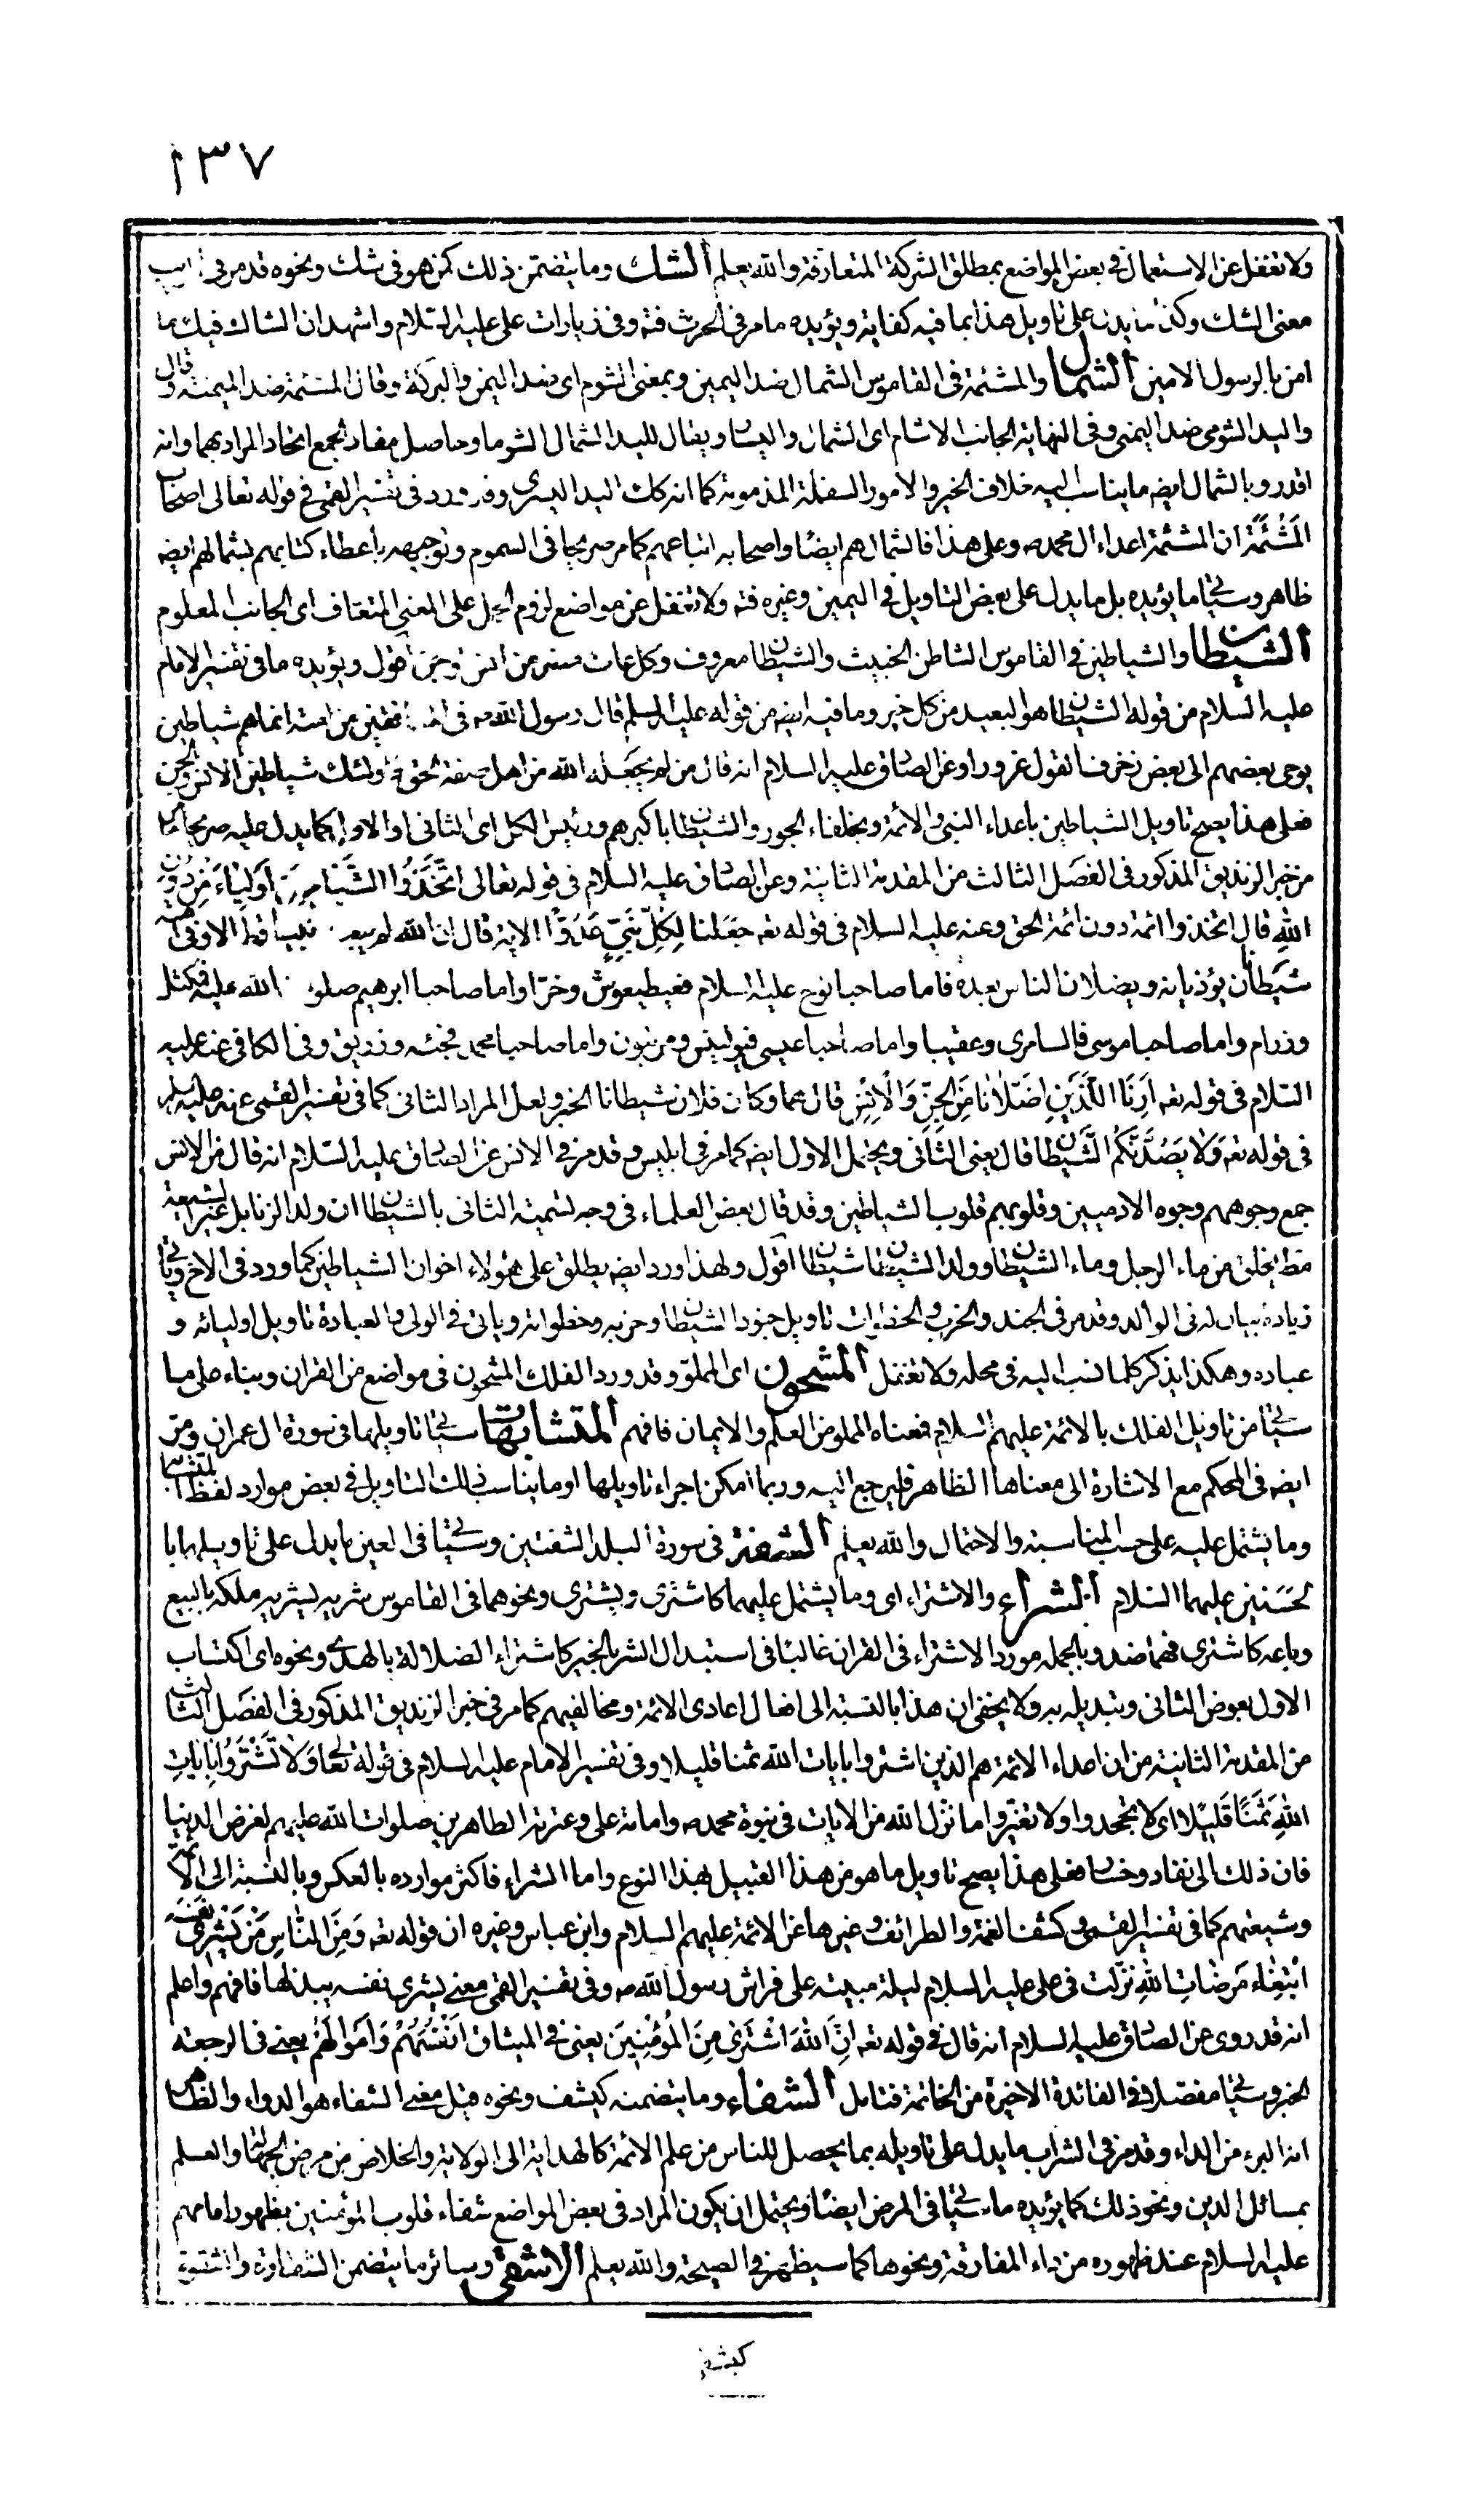 ١٣٧
ولا تغفل عن الاستعمال في بعض المواضع بمطلق الشركة المتعارفة والله يعلم الشك وما يتضمن ذلك كمن هو في شك ونحوه قد مر في
معنى الشك وكذا ما يدل على تاويل هذا بما فيه كفاية ويؤيده ما مر في الحرث فته وفي زيارات علي عليه السلام واشهد ان الشاك فيك ما
امن بالرسول الامين الشمال والمشئمة في القاموس الشمال ضد اليمين وبمعنى الشوم اى ضد اليمن والبركة وقال المشئمة ضد الميمنة وقال
واليد الشومى ضد اليمنى وفي النهاية الجانب الاشام اى الشمال واليسار ويقال لليد الشمال الشوما وحاصل مفاد الجمع اتحاد المراد بهما وانه
اقدر وبالشمال ايضه ما يناسب اليه خلاف الخير والامور السفلة المذمومة كما انه كك اليد اليسرى وقد ورد في تفسير القمي في قوله تعالى اصحاب
المَشْئَمَة ان المشئمة اعداء ال محمد ص وعلى هذا فالشمال هم ايضًا واصحابه اتباعهم كما مر صريحا في السموم وتوجيهه بأعطاء كتابهم بشمالهم ايضه
ظاهر وسيأتي ما يؤيده بل ما يدل على بعض التاويل في اليمين وغيره فته ولا تغفل عن مواضع لزوم الحمل على المعنى المتعارف اى الجانب المعلوم
الشيطان والشياطين في القاموس الشاطن الخبيث والشيطان معروف وكل عات متمرد من انس وجن اقول ويؤيده ما في تفسير الامام
عليه السلام من قوله الشيطان هو البعيد من كل خير وما فيه ايضه من قوله عليه السلم قال رسول الله ص في من امته انما هم شياطين
يوحي بعضهم الى بعض زخرف القول غرورا وعن الصادق عليه السلام انه قال من لم يجعله الله من اهل صفة الحق فاولئك شياطين الانس والجن
فعلى هذا يصح تاويل الشياطين باعداء النبي والائمة وبخلفاء الجور والشيطان باكبرهم ورئيس الكل اى الثاني او الاول كما يدل عليه صريحا
من خبر الزنديق المذكور في الفصل الثالث من المقدمة الثانية وعن الصادق عليه السلام في قوله تعالى اتَّخَذُوا الشَّيَاطِينَ اَوْلِيَاءَ مِنْ دُونِ
اللهِ قال اتخذوا ائمة دون ائمة الحق وعنه عليه السلام في قوله تعه جَعَلنا لِكُلِّ نَبِيٍّ عَدُوًّا الاية قال ان الله لم يبعث نبيا قط الا وفي امته
شيطانان يؤذيانه ويضلان الناس بعده فاما صاحبا نوح عليه السلام فغيطيفوش وخرّا واما صاحبا ابرهيم صلوات الله عليه فكثل
ورزام واما صاحبا موسى فالسامرى وعقيبا واما صاحبا عيسى فبولس ومريتون واما صاحبا محمد ص فحبتر وزريق وفي الكافي عنه عليه
السّلام في قوله تعه اَرِنَا اللَّذَيْنِ اَضَلّانَا مِنَ الجِنِّ وَالاِنْسِ قال هما وكان فلان شيطانا الخبر ولعل المراد الثاني كما في تفسير القمي عنه عليه السلم
في قوله تعه وَلا يَصُدَّنَّكُم الشَّيْطَان قال يعنى الثاني ويحتمل الاول ايضه كما مر في ابليس وقد مر في الانس عن الصادق عليه السّلام انه قال من الانس
جمع وجوههم وجوه الادميين وقلوبهم قلوب الشياطين وقد قال بعض العلماء في وجه تسمية الثاني بالشيطان ان ولد الزنا بل غير الشيعة
قط يخلق من ماء الرجل وماء الشيطان وولد الشيطان شيطان اقول ولهذا ورد ايضه يطلق على هؤلاء اخوان الشياطين كما ورد في الاخ ويأتي
زيادة بيان له في الوالد وقد مر في الجند والحزب والخطوات تاويل جنود الشيطان وحزبه وخطواته ويأتي في الولي والعبادة تاويل اوليائه و
عباده وهكذا يذكر كلما نسب اليه في محله ولا تغفل المشحون اى المملوّ وقد ورد الفلك المشحون في مواضع من القران وبناء على ما
سيأتي من تاويل الفلك بالائمة عليهم السلام فمعناه المملو من العلم والايمان فافهم المتشابهات سيأتي تاويلها في سورة ال عمران ومرّ
ايضه في المحكم مع الاشارة الى معناها الظاهر فليرجع اليه وربما امكن اجراء تاويلها او ما يناسب ذلك التاويل في بعض موارد لفظ المتشابه
وما يشتمل عليه على حسب المناسبة والاحتمال والله يعلم الشفة في سورة البلد الشفتين وسيأتي في العين ما يدل على تاويلهما با
لحسنين عليهما السلام الشراء والاشتراء اى وما يشتمل عليهما كاشترى ويشترى ونحوهما في القاموس شريه يشريه ملكه بالبيع
وباعه كاشترى فهما ضد وبالجملة مورد الاشتراء في القران غالبًا في استبدال الشر بالخير كاشتراء الضلالة بالهدى ونحوه اى اكتساب
الاول بعوض الثاني وتبديله به ولا يخفى ان هذا بالنسبة الى افعال اعادى الائمة ومخالفيهم كما مر في خبر الزنديق المذكور في الفصل الثالث
من المقدمة الثانية من ان اعداء الائمة هم الذين اشتروا بايات الله ثمنا قليلا وفي تفسير الامام عليه السلام في قوله تعالى وَلا تَشْتَرُوا بِايَاتِ
اللهِ ثَمَنًا قَلِيْلا اى لا تجحدوا ولا تغيّروا ما نزل الله من الايات في نبوة محمد ص وامامة علي وعترته الطاهرين صلوات الله عليهم لغرض الدنيا
فان ذلك الى نفاد وخسار فعلى هذا يصح تاويل ما هو من هذا القبيل بهذا النوع واما الشراء فاكثر موارده بالعكس وبالنسبة الى الائمّة
وشيعتهم كما في تفسير القمي وكشف الغمة والطرائف وغيرها عن الائمة عليهم السلام وابن عباس وغيره ان قوله تعه وَمِنَ النّاسِ مَنْ يَشْرِي نَفْسَه
ابْتِغاءَ مَرضَاتِ اللهِ نزلت في علي عليه السلام ليلة مبيته على فراش رسول الله ص وفي تفسير القمي معنى يشرى نفسه يبذلها فافهم واعلم
انه قد روى عن الصادق عليه السلام انه قال في قوله تعه اِنَّ اللهَ اشْتَرَى مِنَ الْمُؤْمِنِيَن يعنى في الميثاق اَنْفُسَهُمْ وَاَموَالَهُمْ يعني في الرجعة
الخبر وسيأتي مفصلا في الفائدة الاخيرة من الخاتمة فتامل الشفاء وما يتضمنه كيشف ونحوه قيل معنى الشفاء هو الدواء والظاهر
انه البرء من الداء وقد مر في الشراب ما يدل على تاويله بما يحصل للناس من علم الائمة كالهداية الى الولاية والخلاص من مرض الجهالة والعلم
بمسائل الدين ونحو ذلك كما يؤيده ما سيأتي في المرض ايضًا ويحتمل ان يكون المراد في بعض المواضع شفاء قلوب المؤمنين بظهور امامهم
عليه السلام عند ظهوره من داء المفارقة ونحوها كما سيظهر في الصيحة والله يعلم الاشقى وسائر ما يتضمن الشقاوة والشقوة